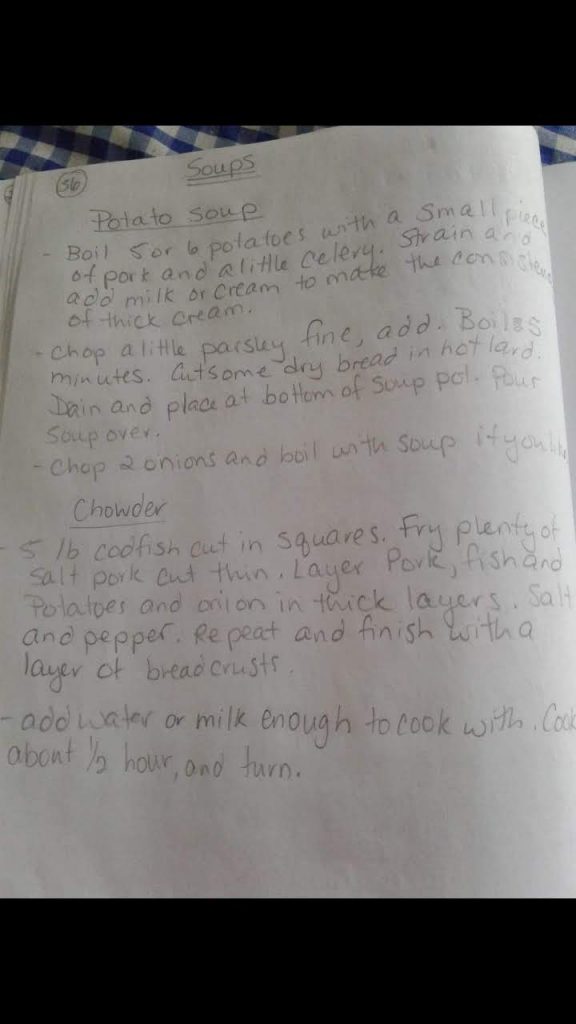 56
Soups
Potato Soup
- Boil 5 or 6 potatoes with a small piece
of pork and a little celery. Strain and
add milk or cream to make the
of thick cream.
- Chop a little parsley fine, add. Boil 5
minutes. Cut some dry bread in hot lard.
Dain and place at bottom of soup pot. Pour
Soup over.
- Chop 2 onions and boil with soup if you
Chowder
- 5 lb codfish cut in squares. Fry plenty of
Salt pork cut thin. Layer Pork, fish and
Potatoes and onion in thick layers. Salt
and pepper. Repeat and finish with a
layer of bread crusts.
- add water or milk enough to cook with. Cook
about 1/2 hour, and turn.